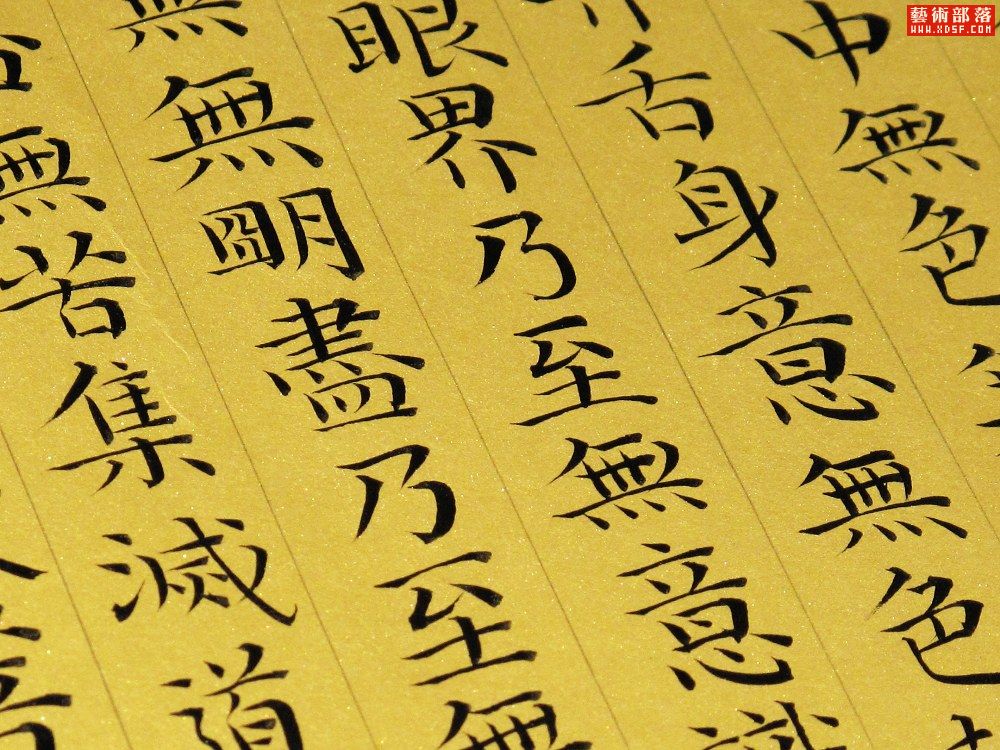 藝術部落
WWW.XDSF.COM
中無色
舌身意無色
眼界乃至無意識
無無明盡乃至無
無苦集滅道